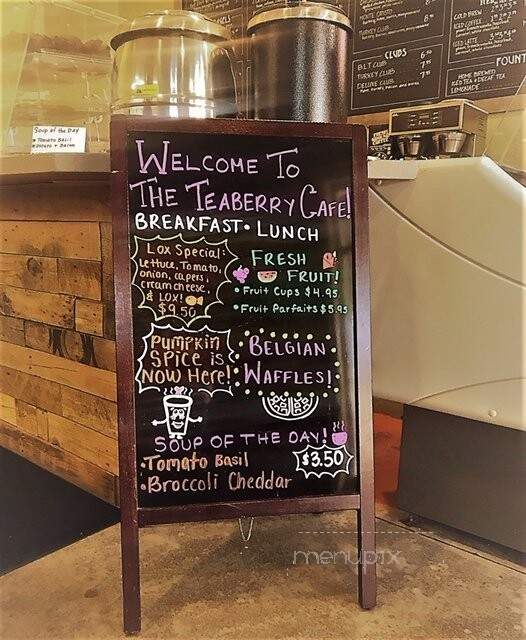 WELCOME TO
THE TEABERRY CAFE!
BREAKFAST • LUNCH
Lox Special:
Lettuce, Tomato,
onion, capers,
cream cheese,
& LOX!
$9.50
FRESH
FRUIT!
• Fruit Cups $4.95
• Fruit Parfaits $5.95
PUMPKIN
SPICE IS
NOW Here!
BELGIAN
WAFFLES!
SOUP OF THE DAY!
• Tomato Basil
• Broccoli Cheddar
$3.50
Soup of the Day
• Tomato Basil
• Potato + Bacon
MONTE CRISTO
TURKEY CLUB
CLUBS
BLT CLUB
TURKEY CLUB
DELUXE CLUB
COLD BREW
ICED COFFEE
ICED LATTE
FOUNT
HOME BREWED
ICED TEA + DECAF TEA
LEMONADE
menupix